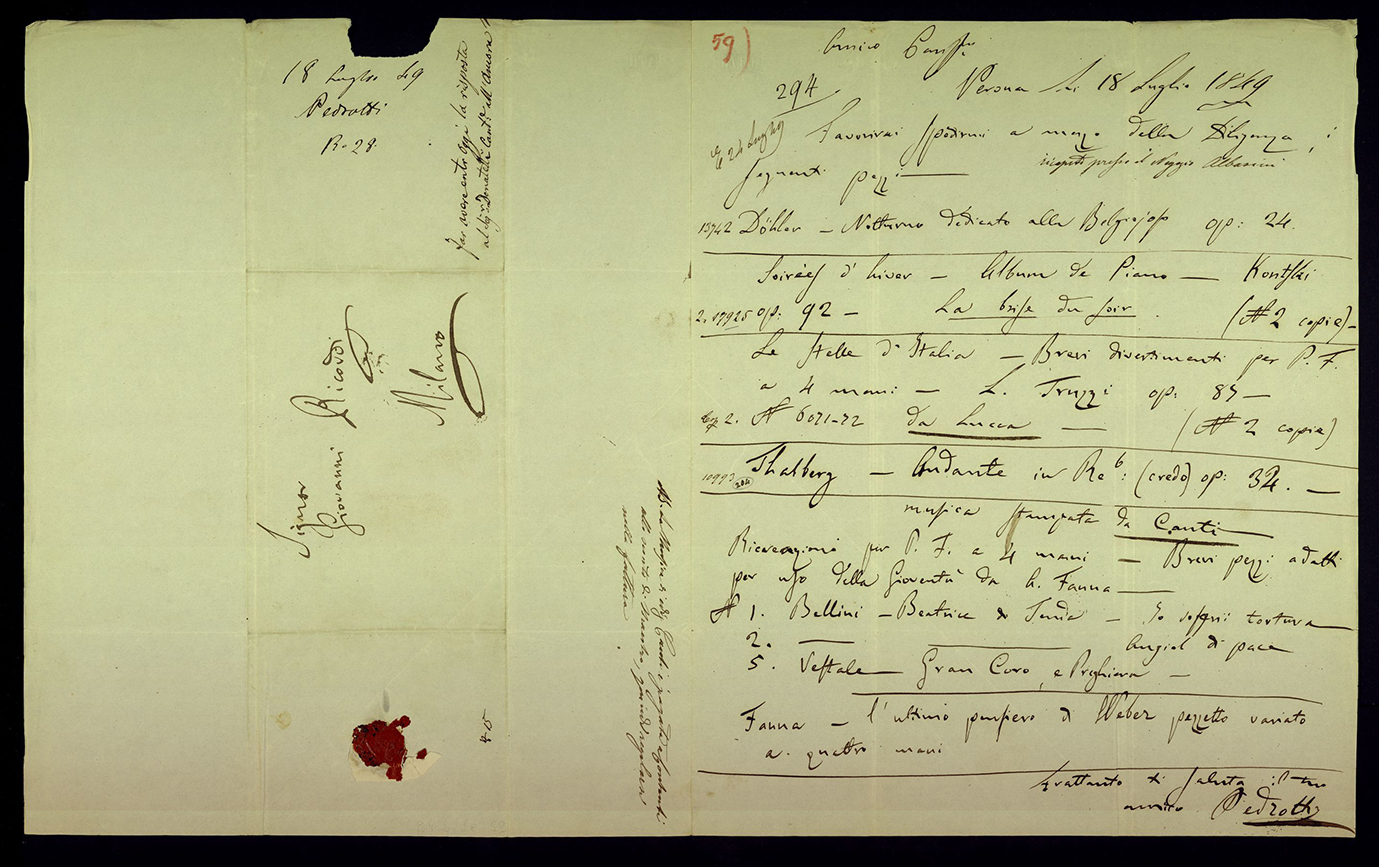 18 Luglio 49
Pedrotti
R. 28
far avere entro oggi la risposta
al Sig. Donatelli
Signor
Giovanni Ricordi
Milano
NB. La Musica di
alla contr. di
nella fattura
59)
Amico Cariss.mo
294
Verona li 18 Luglio 1849
E 24 Luglio
Favorirai spedirmi a mezzo della Diligenza, i
seguenti pezzi
13742 Döhler – Notturno dedicato alla Belgiojoso op: 24.
Soirées d'hiver – Album de Piano — Kontski
2. 17925 op: 92 – La brise du soir. (N 2 copie) –
Le Stelle d'Italia – Brevi divertimenti per P. F.
a 4 mani – L. Truzzi op: 87 –
2. N 6071-72 da Lucca — (N 2 copie)
10993 Thalberg – Andante in Re b: (credo) op: 32. —
204
musica stampata da Canti
Ricreazioni per P. F. a 4 mani – Brevi pezzi adatti
per uso della Gioventù da A. Fanna —
N 1. Bellini – Beatrice di Tenda – Io soffrii tortura
2. — — Angiol di pace
5. Vestale — Gran Coro, e Preghiera –
Fanna – l'ultimo pensiero di Weber pezzetto variato
a quattro mani
Frattanto ti saluta il tuo
amico Pedrotti